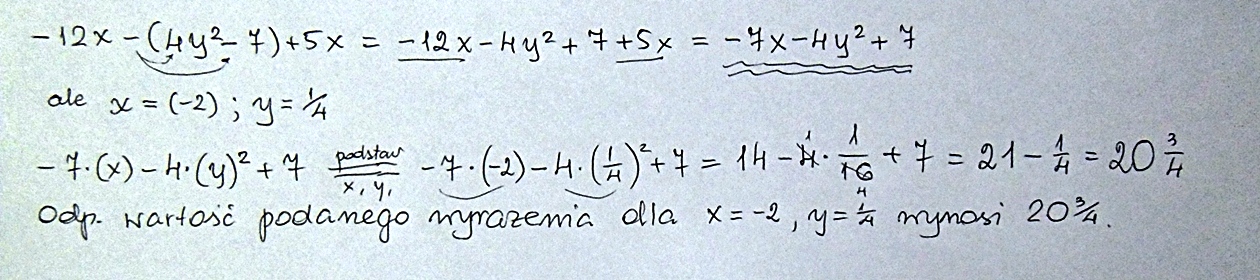 -12x - (4y² - 7) + 5x = -12x - 4y² + 7 + 5x = -7x - 4y² + 7
ale x = (-2) ; y = 1/4
-7·(x) - 4·(y)² + 7 podstaw x, y, -7·(-2) - 4·(1/4)² + 7 = 14 - 4·1/16 + 7 = 21 - 1/4 = 20 3/4
Odp. wartość podanego wyrażenia dla x = -2, y = 1/4 wynosi 20 3/4.